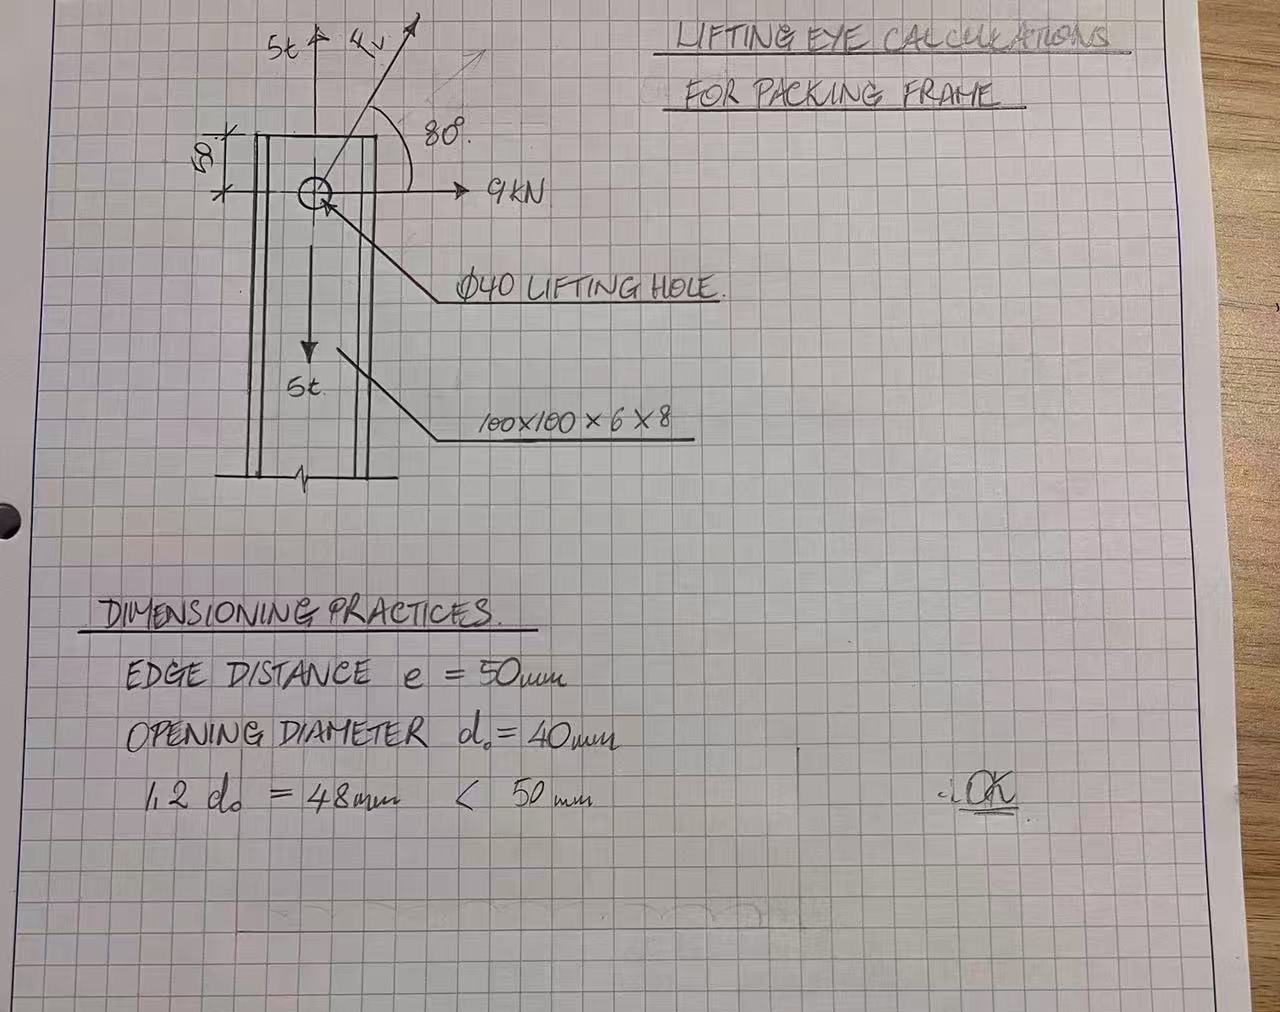 LIFTING EYE CALCULATIONS
FOR PACKING FRAME
5t
80°.
50
9kN
Ø40 LIFTING HOLE.
5t.
100x100 x 6 x 8
DIMENSIONING PRACTICES.
EDGE DISTANCE e = 50mm
OPENING DIAMETER d₀ = 40mm
1,2 d₀ = 48mm < 50mm
∴ OK